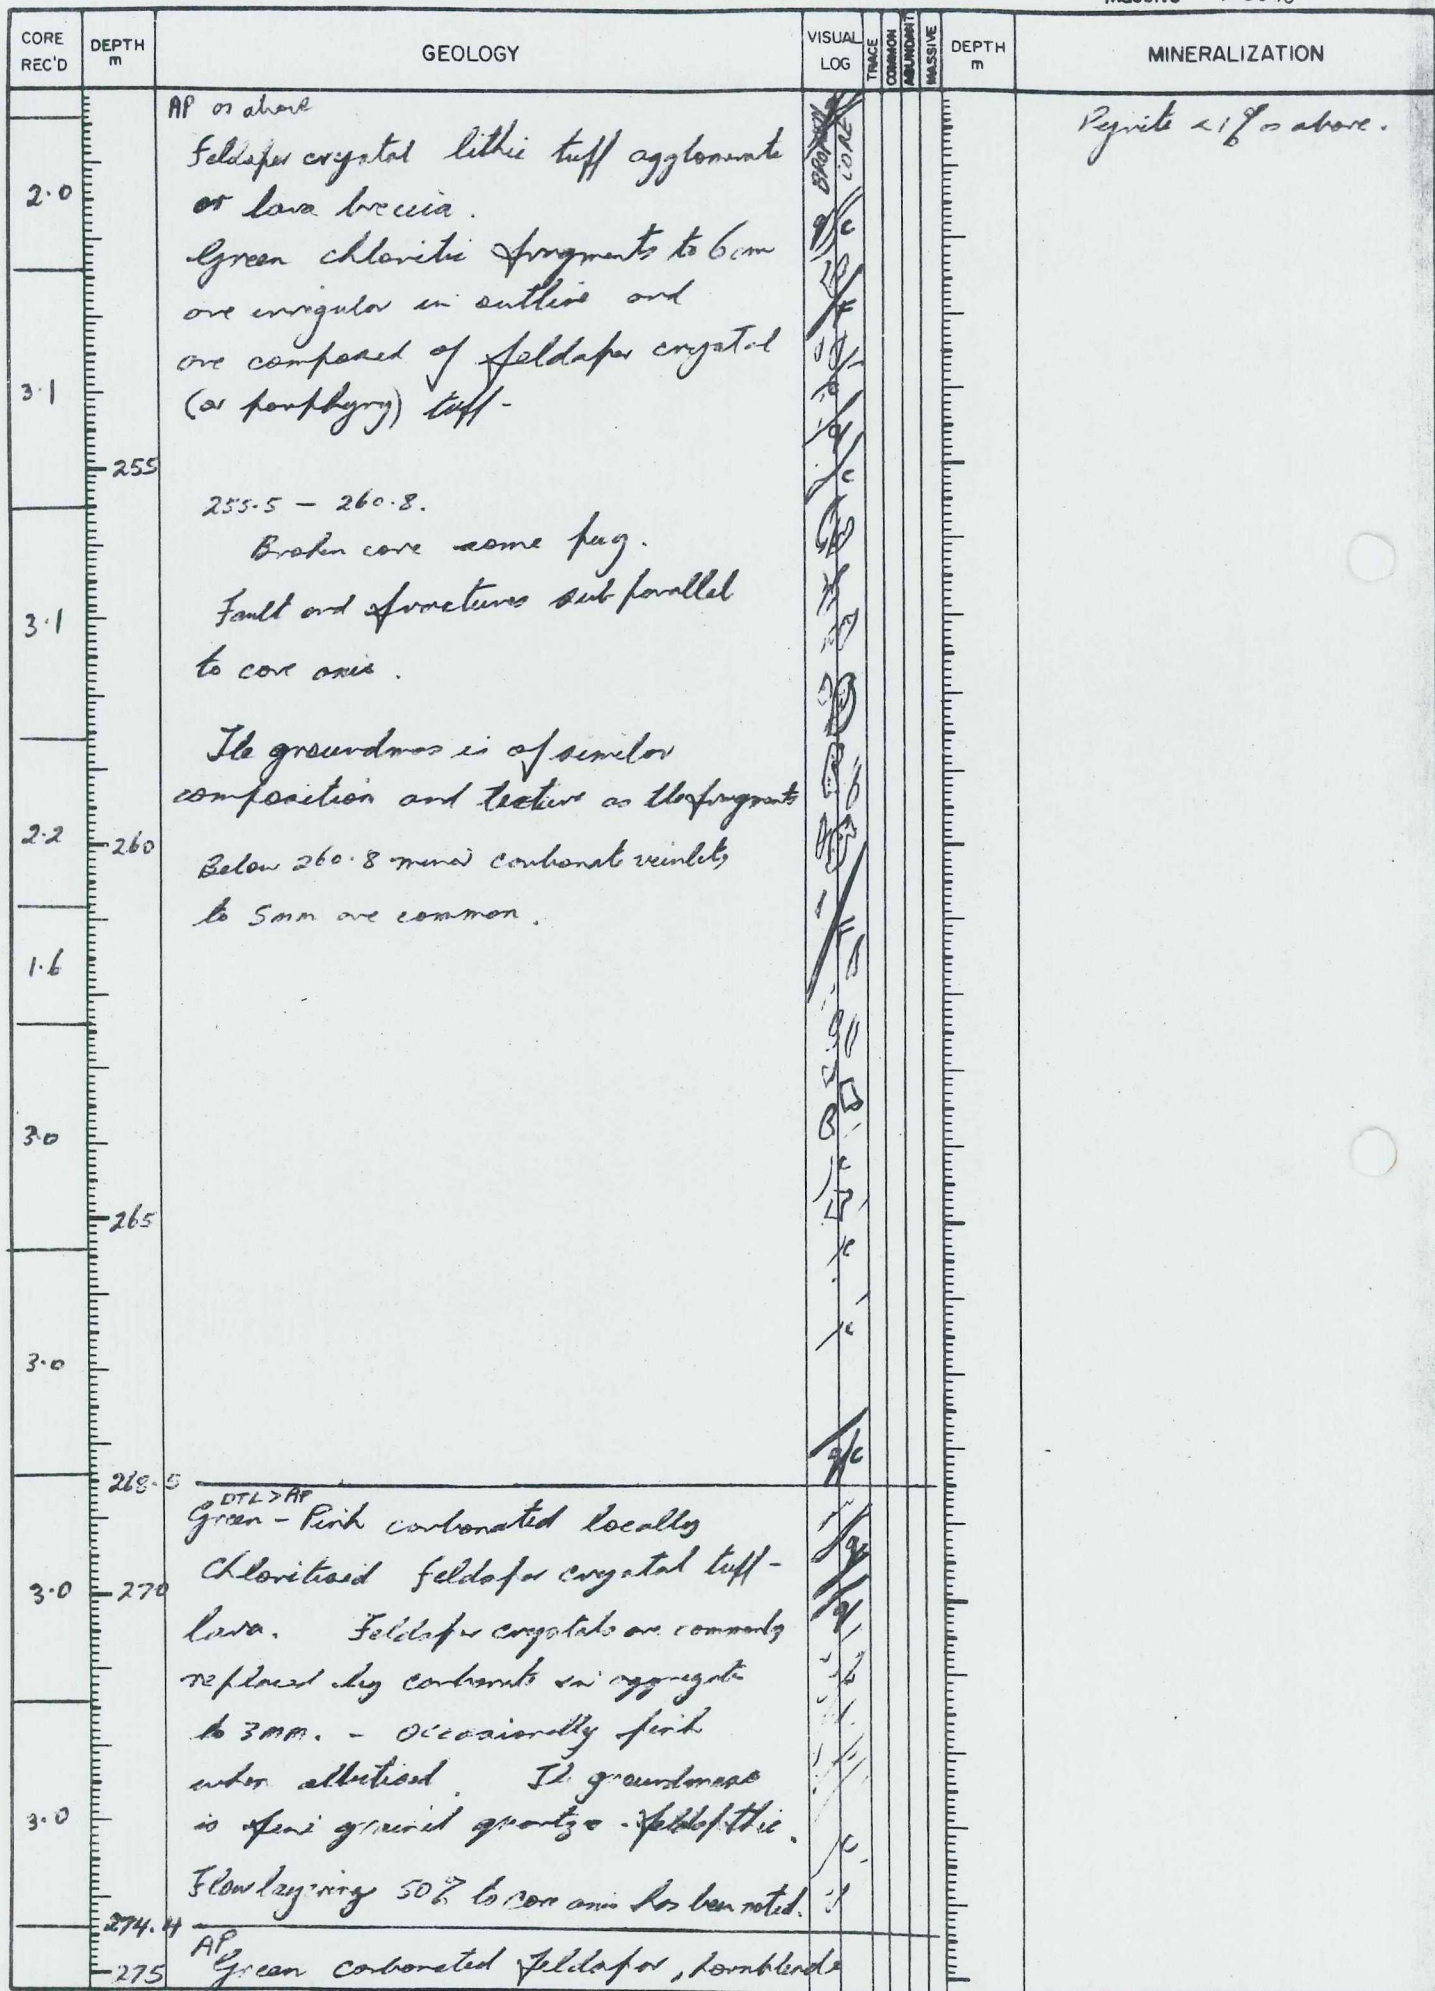 CORE REC'D
DEPTH m
GEOLOGY
VISUAL LOG
TRACE
COMMON
ABUNDANT
MASSIVE
DEPTH m
MINERALIZATION
AP as above
Pyrite <1% as above.
Feldspar crystal lithic tuff agglomerate
BROKEN CORE
2.0
or lava breccia.
Green chloritic fragments to 6cm
are irregular in outline and
are composed of feldspar crystal
3.1
(or porphyry) tuff-
255
255.5 - 260.8.
Broken core some pug.
Fault and fractures sub parallel
3.1
to core axis.
The groundmass is of similar
composition and texture as the fragments
2.2
260
Below 260.8 minor carbonate veinlets
to 5mm are common.
1.6
3.0
265
3.0
268.5
DTL>AP
Green - Pink carbonated locally
Chloritised feldspar crystal tuff-
3.0
270
lava. Feldspar crystals are commonly
replaced by carbonate in aggregate
to 3mm. - Occasionally pink
when albitised. The groundmass
3.0
is fine grained quartzo-feldspthic.
Flow layering 50% to core axis has been noted.
274.4
AP
275
Green carbonated feldspar, hornblende